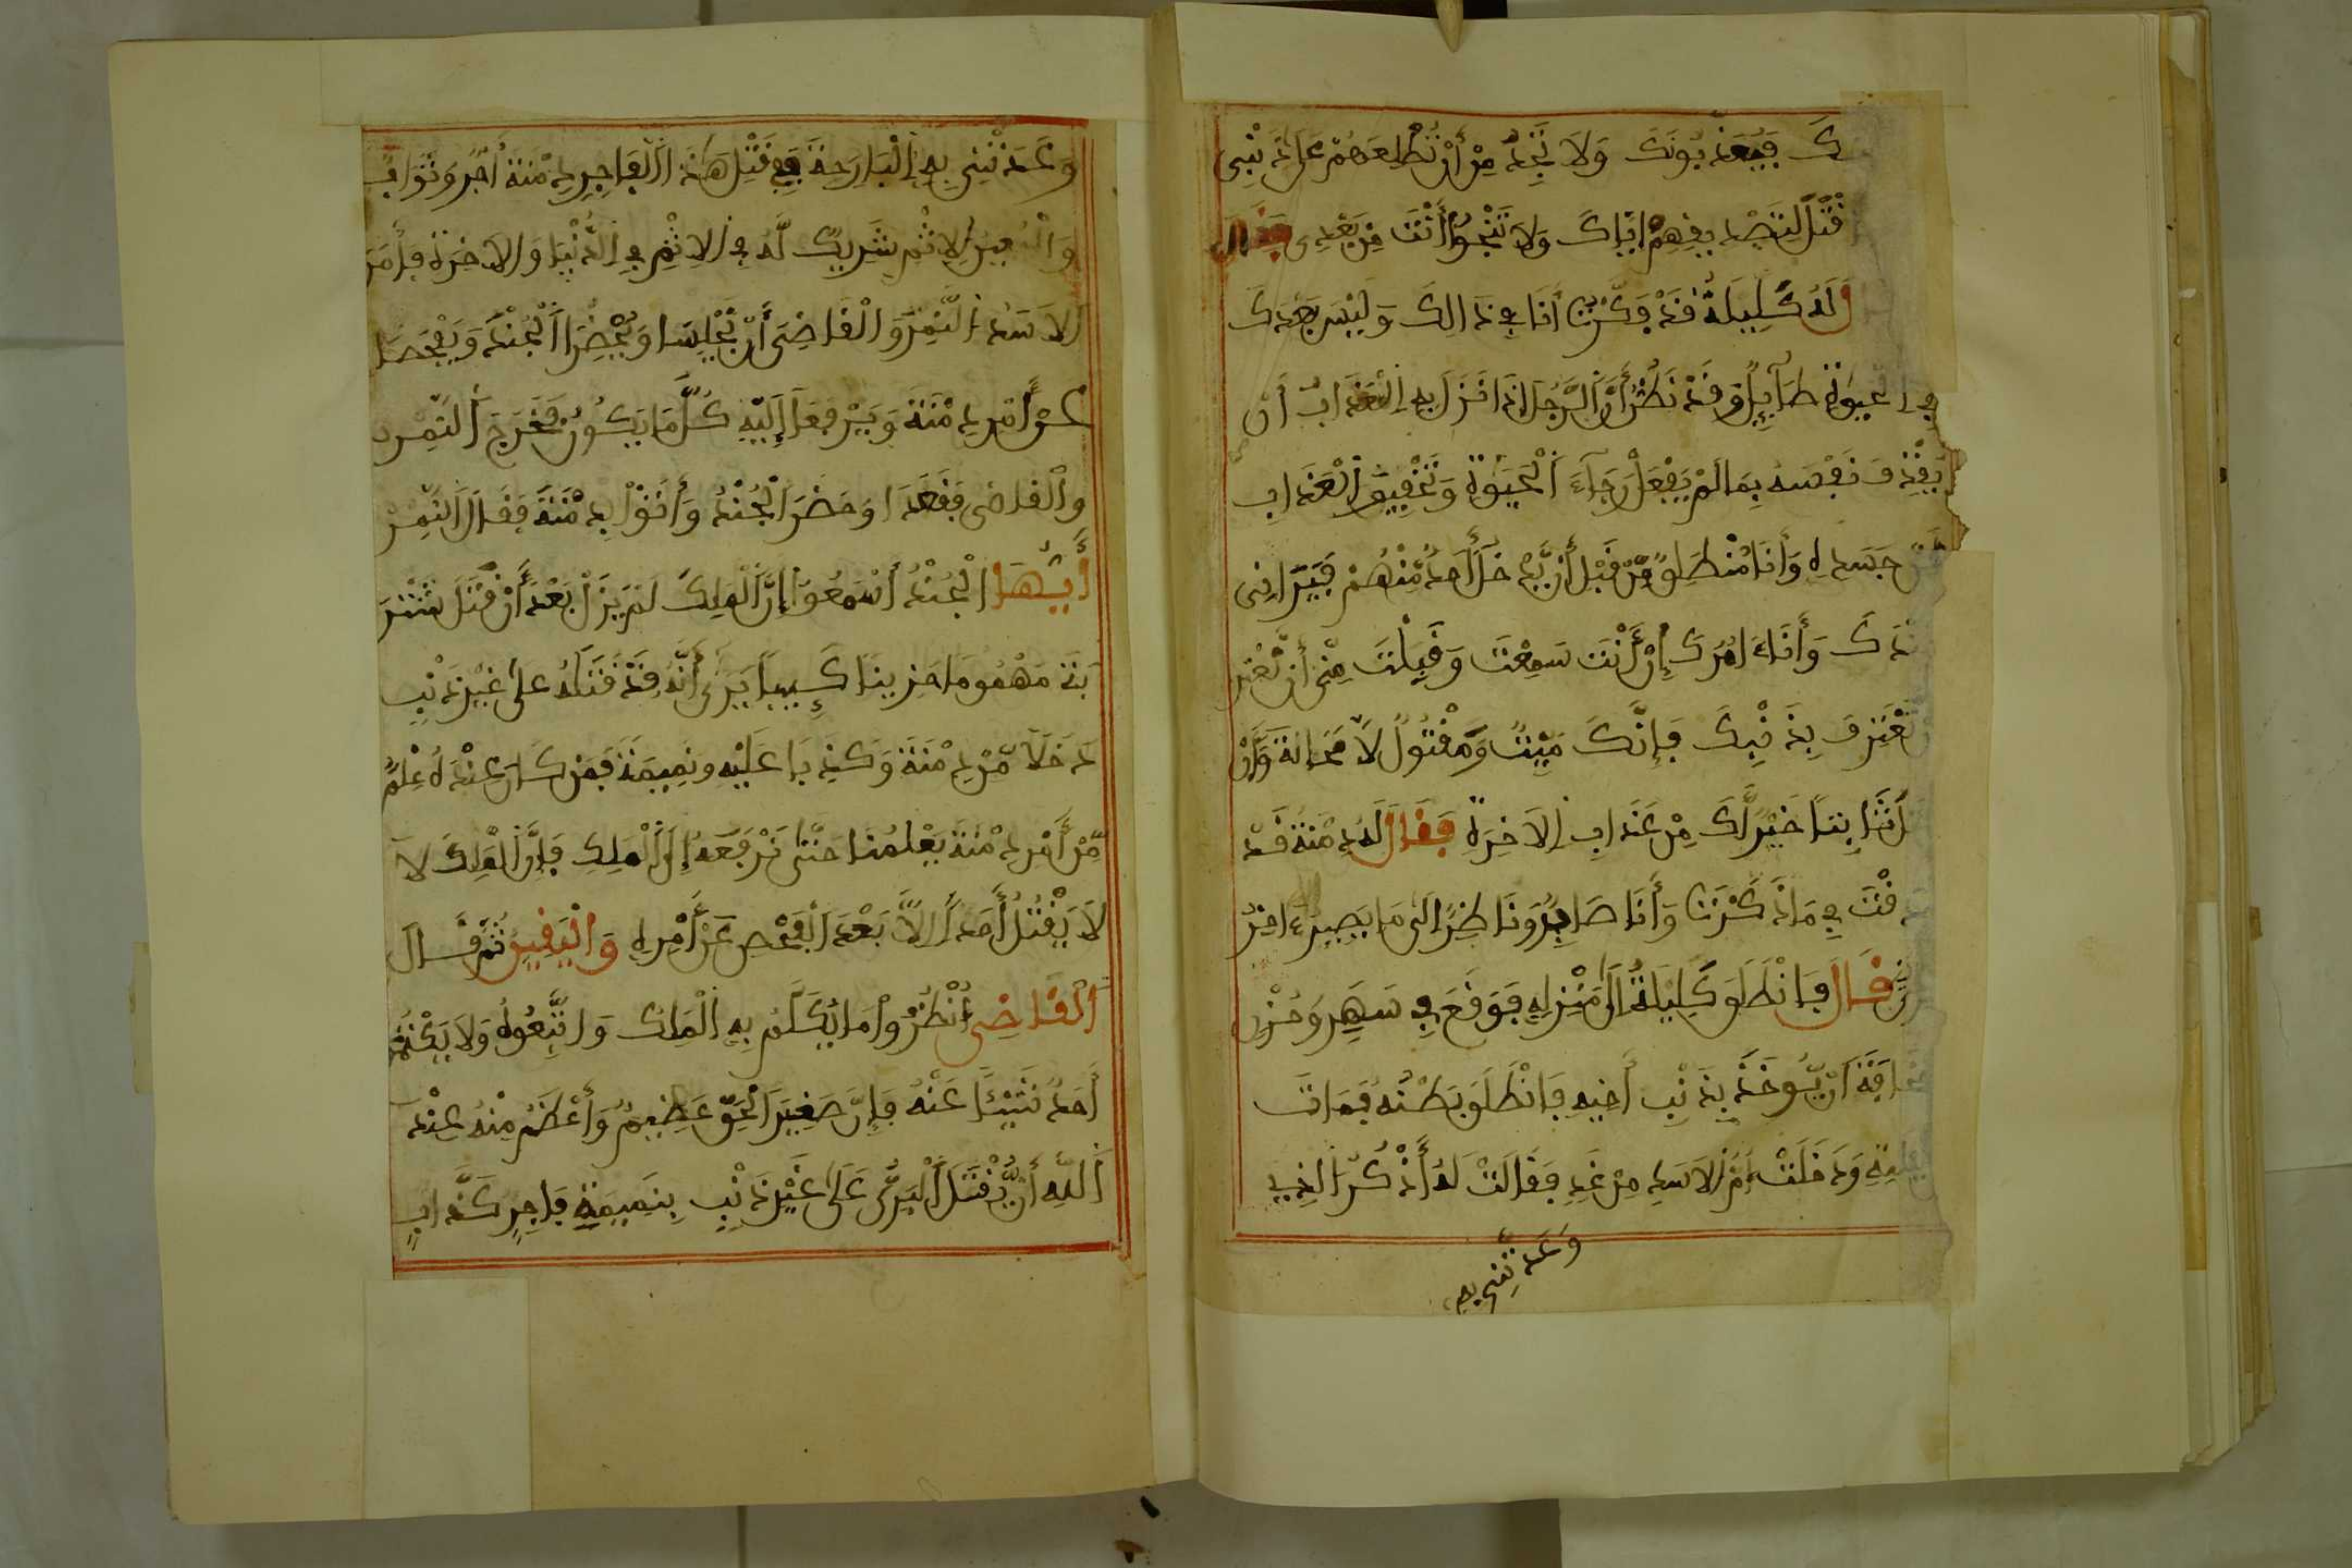 ك فيعذبونك ولا تجد من أن تطلعهم على ذنبى
قتلا لتصديقهم اياك ولا تنجوا أنت من بعدى فقال
له كليلة قد فكرت انا في ذالك وليس بعدك
في الحيوة طآيل وقد نظرت أن الرجل اذا نزل به العذاب أن
يقذف نفسه بما لم يفعل رجآء الحيوة وتخفيف العذاب
عن جسده وأنا منطلق من قبل أن يدخل أحد منهم فيرانى
عندك وأنا ءامرك إن أنت سمعت وقبلت منى أن
تعترف بذنبك فإنك ميت ومقتول لا محالة وأن
خير لك من عذاب الاخرة فقال له دمنة قد
صدقت في ما ذكرت وأنا صابر وناظر الى ما يصير ءاخر
قال فانطلق كليلة الى منزله فوقع في سهر وحزن
مخافة ان يؤخذ بذنب أخيه فانطلق بطنه فمات
ودخلت أم الاسد من غد فقالت له أذكر الذى
وعدتنى به
وعدتنى به البارحة في قتل هذا الفاجر دمنة أجر وثواب
والمعين للاثم شريك له في الاثم في الدنيا والاخرة فأمر
الاسد النمر والقاضى أن يجلسا ويحضرا الجند ويفحصا
عن أمر دمنة ويرفعا إليه كل ما يكون فخرج النمر
والقاضى فقعدا وحضر الجند وأتوا بدمنة فقال النمر
أيها الجند أسمعوا إن الملك لم يزل بعد أن قتل شتر
بة مهموما حزينا كييبا يرى أنه قد قتله على غير ذنب
دخلا من دمنة وكذبا عليه ونميمة فمن كان عنده علم
من أمر دمنة يعلمنا حتى نرفعه إلى الملك فإن الملك لا
لا يقتل أحدا الا بعد الفحص عن أمره واليقين ثم قال
القاضى أنظروا ما يكلم به الملك واتبعوه ولا يكتم
أحد شيئا عنه فإن صغير الحق عظيم وأعظم منه عند
الله أن يقتل البرى على غير ذنب بنميمة فاجر كذاب